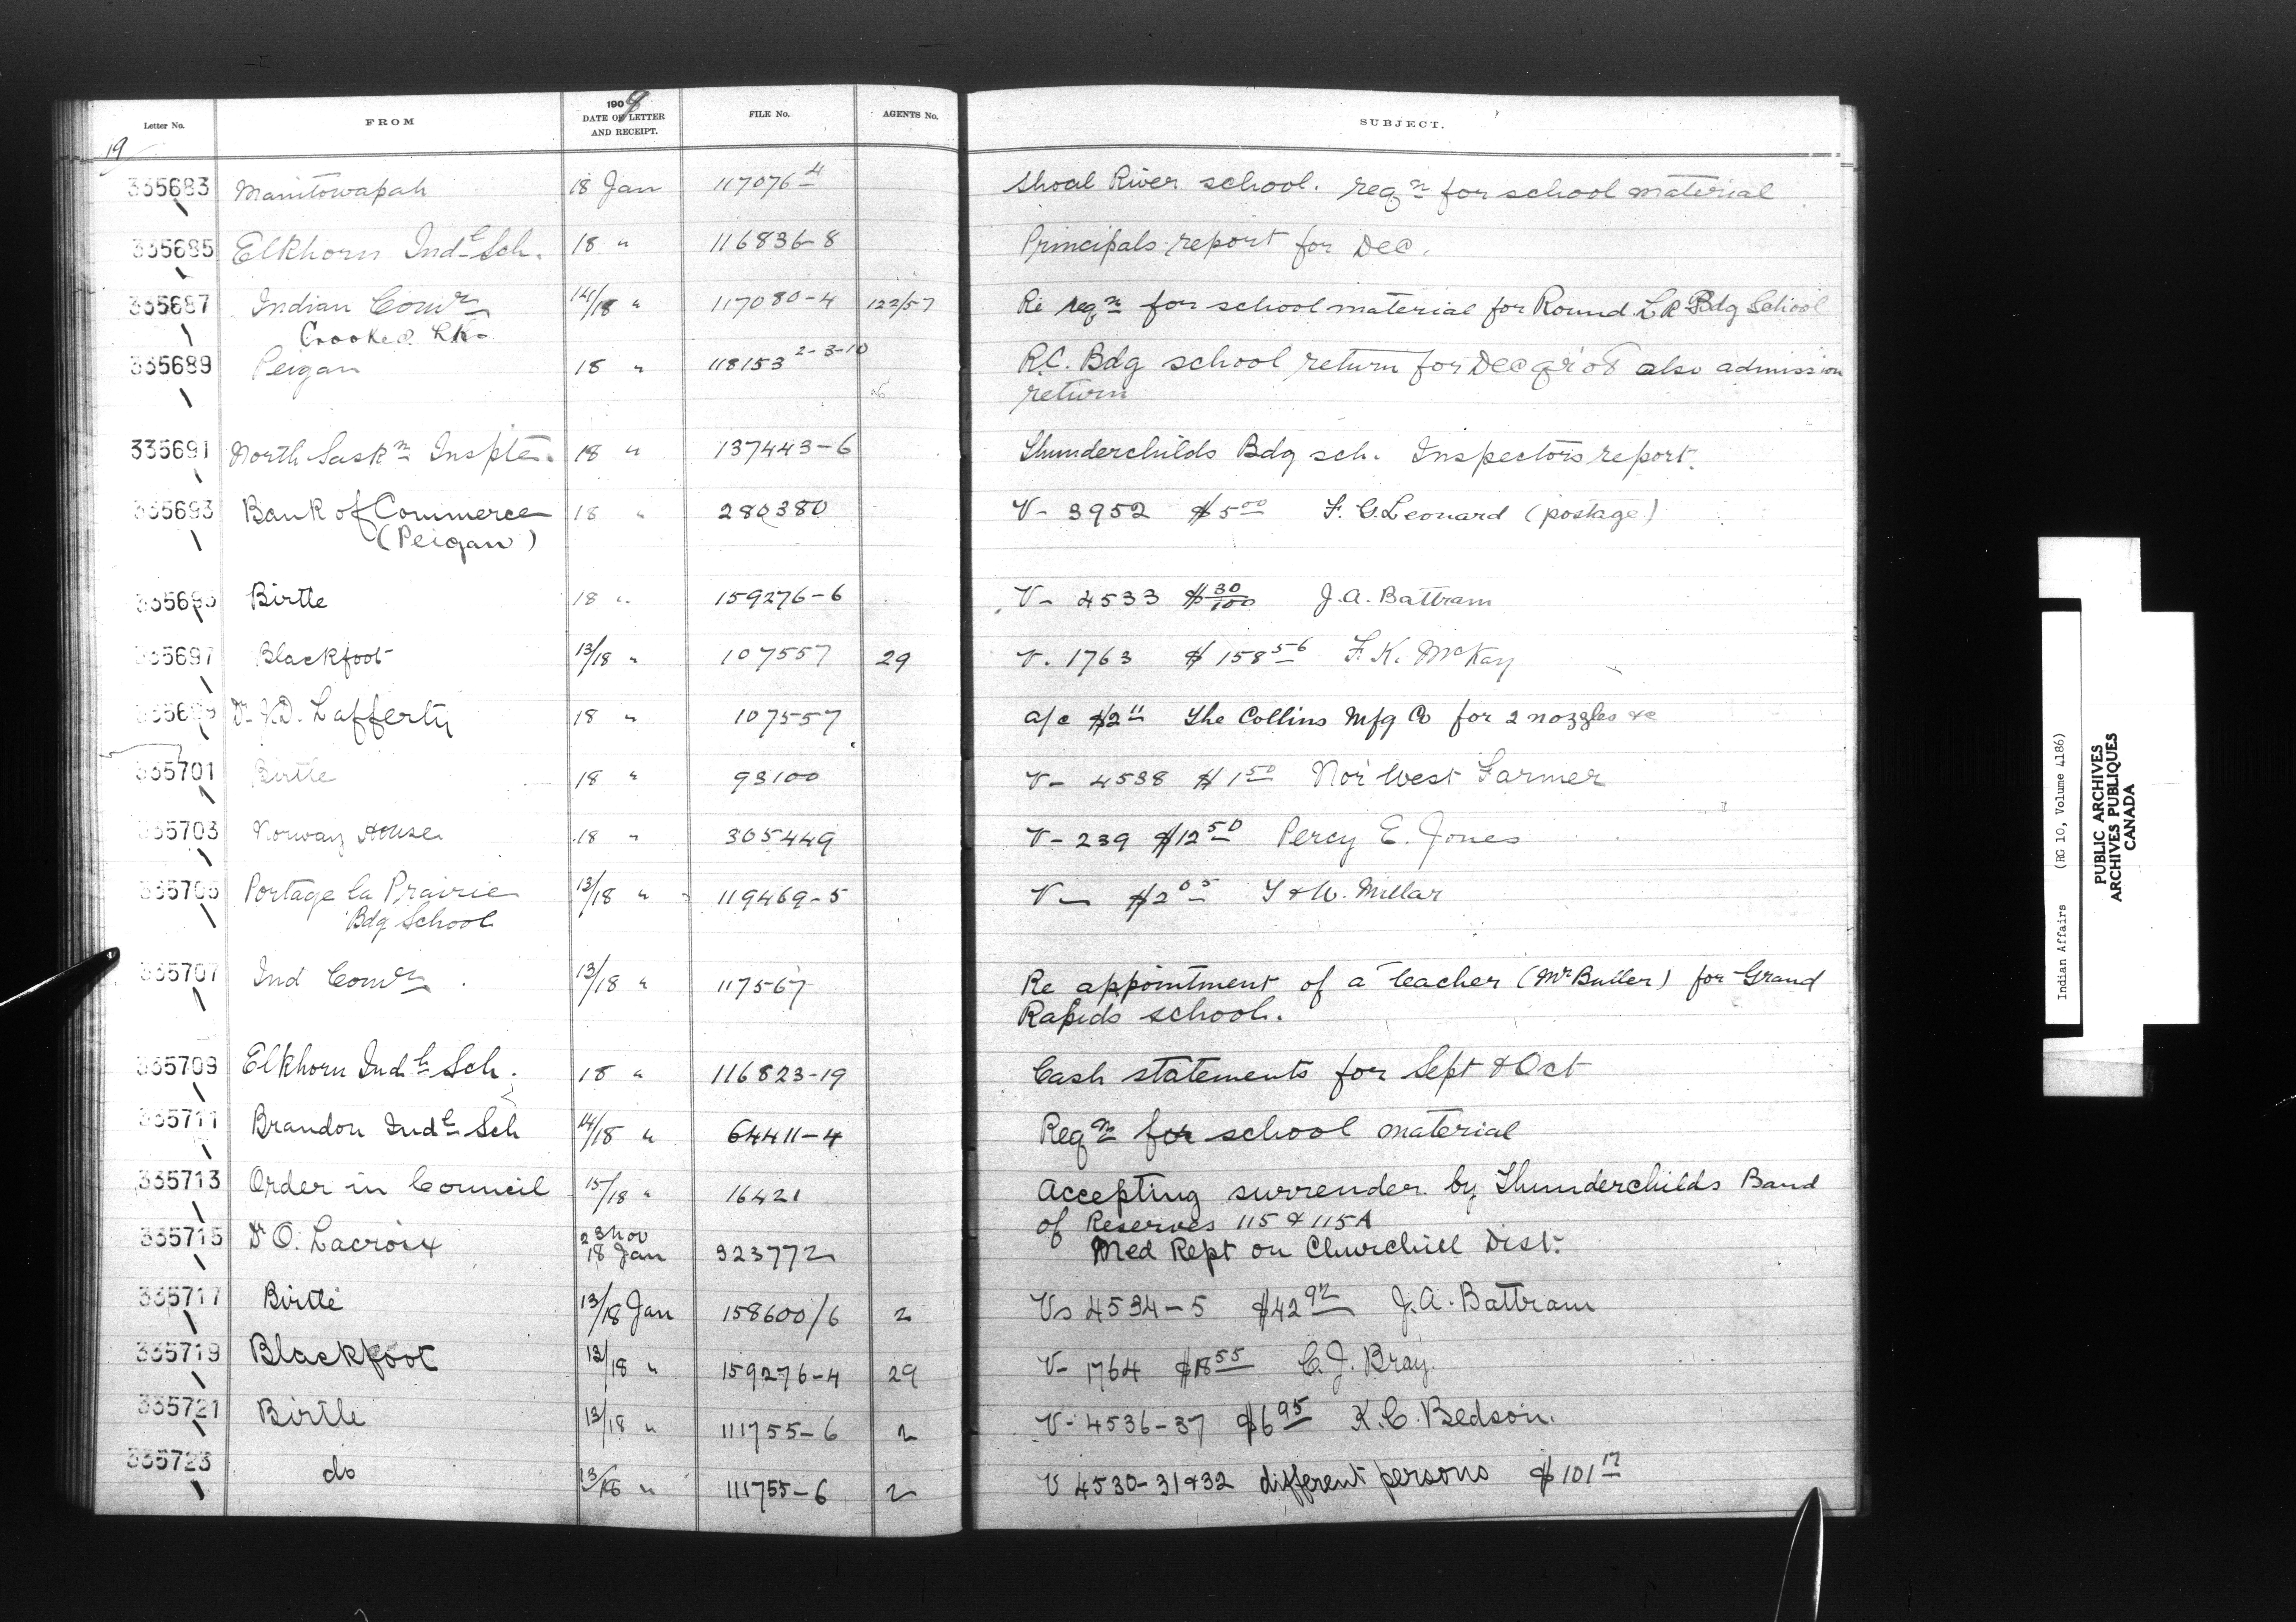 Letter No. FROM 1909 DATE OF LETTER AND RECEIPT. FILE No. AGENTS No. SUBJECT.
19/
335683 Manitowapah 18 Jan 117076-4 Shoal River school. reqn for school material
335685 Elkhorn Indl Sch. 18 " 116836-8 Principals report for Dec.
335687 Indian Comr 14/18 " 117080-4 122/57 Re reqn for school material for Round Lk Bdg School
Crooked Lks
335689 Peigan 18 " 118153 2-3-10 R.C. Bdg school return for Dec qr '08 also admission
return
335691 North Saskn Inspte. 18 " 137443-6 Thunderchilds Bdg sch. Inspectors report.
335693 Bank of Commerce 18 " 280380 V- 3952 $5 00 F. G. Leonard (postage)
(Peigan)
335695 Birtle 18 " 159276-6 V- 4533 $ 30/100 J.A. Battram
335697 Blackfoot 13/18 " 107557 29 V. 1763 $158 56 F. K. McKay
335699 Dr J.D. Lafferty 18 " 107557 a/c $2 11 The Collins Mfg Co for 2 nozzles &c
335701 Birtle 18 " 93100 V- 4538 $1 50 Nor' West Farmer
335703 Norway House 18 " 305449 V- 239 $12 50 Percy E. Jones
335705 Portage la Prairie 13/18 " 119469-5 V- $2 05 T & W. Millar
Bdg School
335707 Ind Comr 13/18 " 117567 Re appointment of a teacher (Mr Butler) for Grand
Rapids school.
335709 Elkhorn Indl Sch. 18 " 116823-19 Cash statements for Sept & Oct
335711 Brandon Indl Sch 14/18 " 64411-4 Reqn for school material
335713 Order in Council 15/18 " 16421 Accepting surrender by Thunderchilds Band
of Reserves 115 & 115A
335715 Dr O. Lacroix 23 Nov 18 Jan 323772 Med Rept on Churchill Dist.
335717 Birtle 13/18 Jan 158600/6 2 Vs 4534-5 $42 92 J.A. Battram
335719 Blackfoot 13/18 " 159276-4 29 V- 1764 $18 55 C. J. Bray.
335721 Birtle 13/18 " 111755-6 2 V- 4536-37 $6 95 K. C. Bedson.
335723 do 13/18 " 111755-6 2 V 4530-31&32 different persons $101 17
Indian Affairs (RG 10, Volume 4186)
PUBLIC ARCHIVES
ARCHIVES PUBLIQUES
CANADA